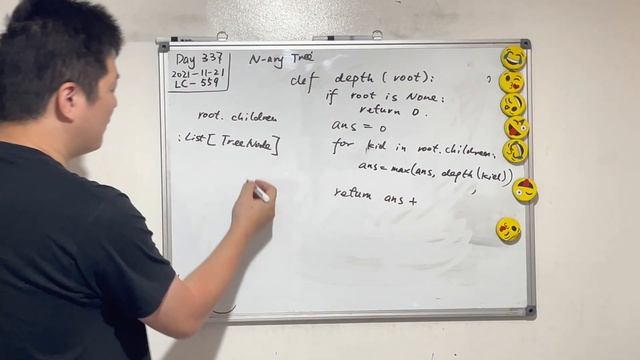 Day 337
2021-11-21
LC-559
N-ary Tree
def depth(root):
if root is None:
return 0.
ans = 0
for kid in root.children:
ans = max(ans, depth(kid))
return ans +
root.children
: List[TreeNode]